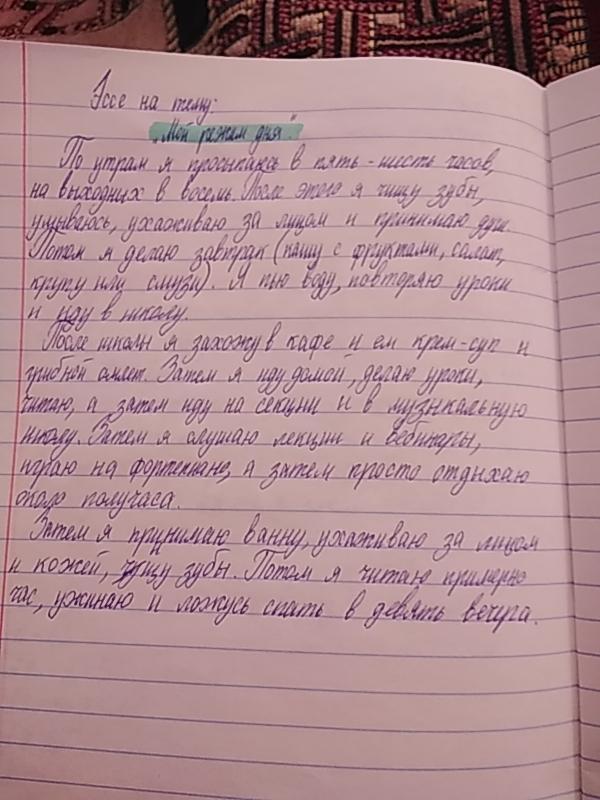 Эссе на тему:
"Мой режим дня."
По утрам я просыпаюсь в пять-шесть часов,
на выходных в восемь. После этого я чищу зубы,
умываюсь, ухаживаю за лицом и принимаю душ.
Потом я делаю завтрак (кашу с фруктами, салат,
крупу или смузи). Я пью воду, повторяю уроки
и иду в школу.
После школы я захожу в кафе и ем крем-суп и
грибной омлет. Затем я иду домой, делаю уроки,
читаю, а затем иду на секции и в музыкальную
школу. Затем я слушаю лекции и вебинары,
играю на фортепиано, а затем просто отдыхаю
около получаса.
Затем я принимаю ванну, ухаживаю за лицом
и кожей, чищу зубы. Потом я читаю примерно
час, ужинаю и ложусь спать в девять вечера.